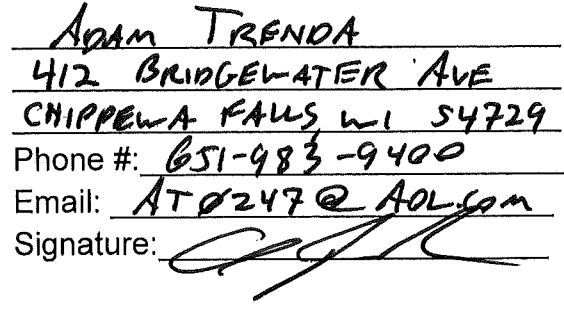 ADAM TRENDA
412 BRIDGEWATER AVE
CHIPPEWA FALLS, WI 54729
Phone #: 651-983-9400
Email: AT0247@AOL.com
Signature: